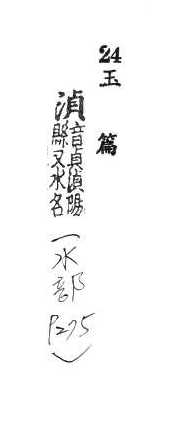 24
玉篇
湞音貞湞陽
縣又水名
(水部
P275)